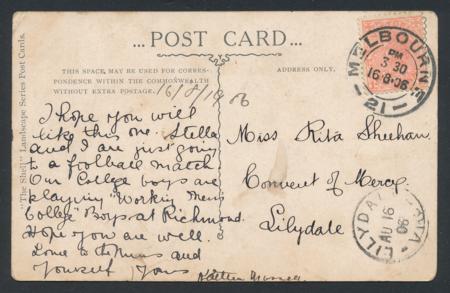 ... POST CARD ...
THIS SPACE, MAY BE USED FOR CORRES-
PONDENCE WITHIN THE COMMONWEALTH
WITHOUT EXTRA POSTAGE.
ADDRESS ONLY.
16/8/1906
"The Shell" Landscape Series Post Cards.
I hope you will
like this one. Stella
and I are just going
to a football match
Our College boys are
playing "Working Mens
College" Boys at Richmond.
Hope you are well.
Love to the Nuns and
yourself Yours
Miss Rita Sheehan
Convent of Mercy
Lilydale
MELBOURNE
PM
3 30
16·8·06
21
LILYDALE
AU 16
06